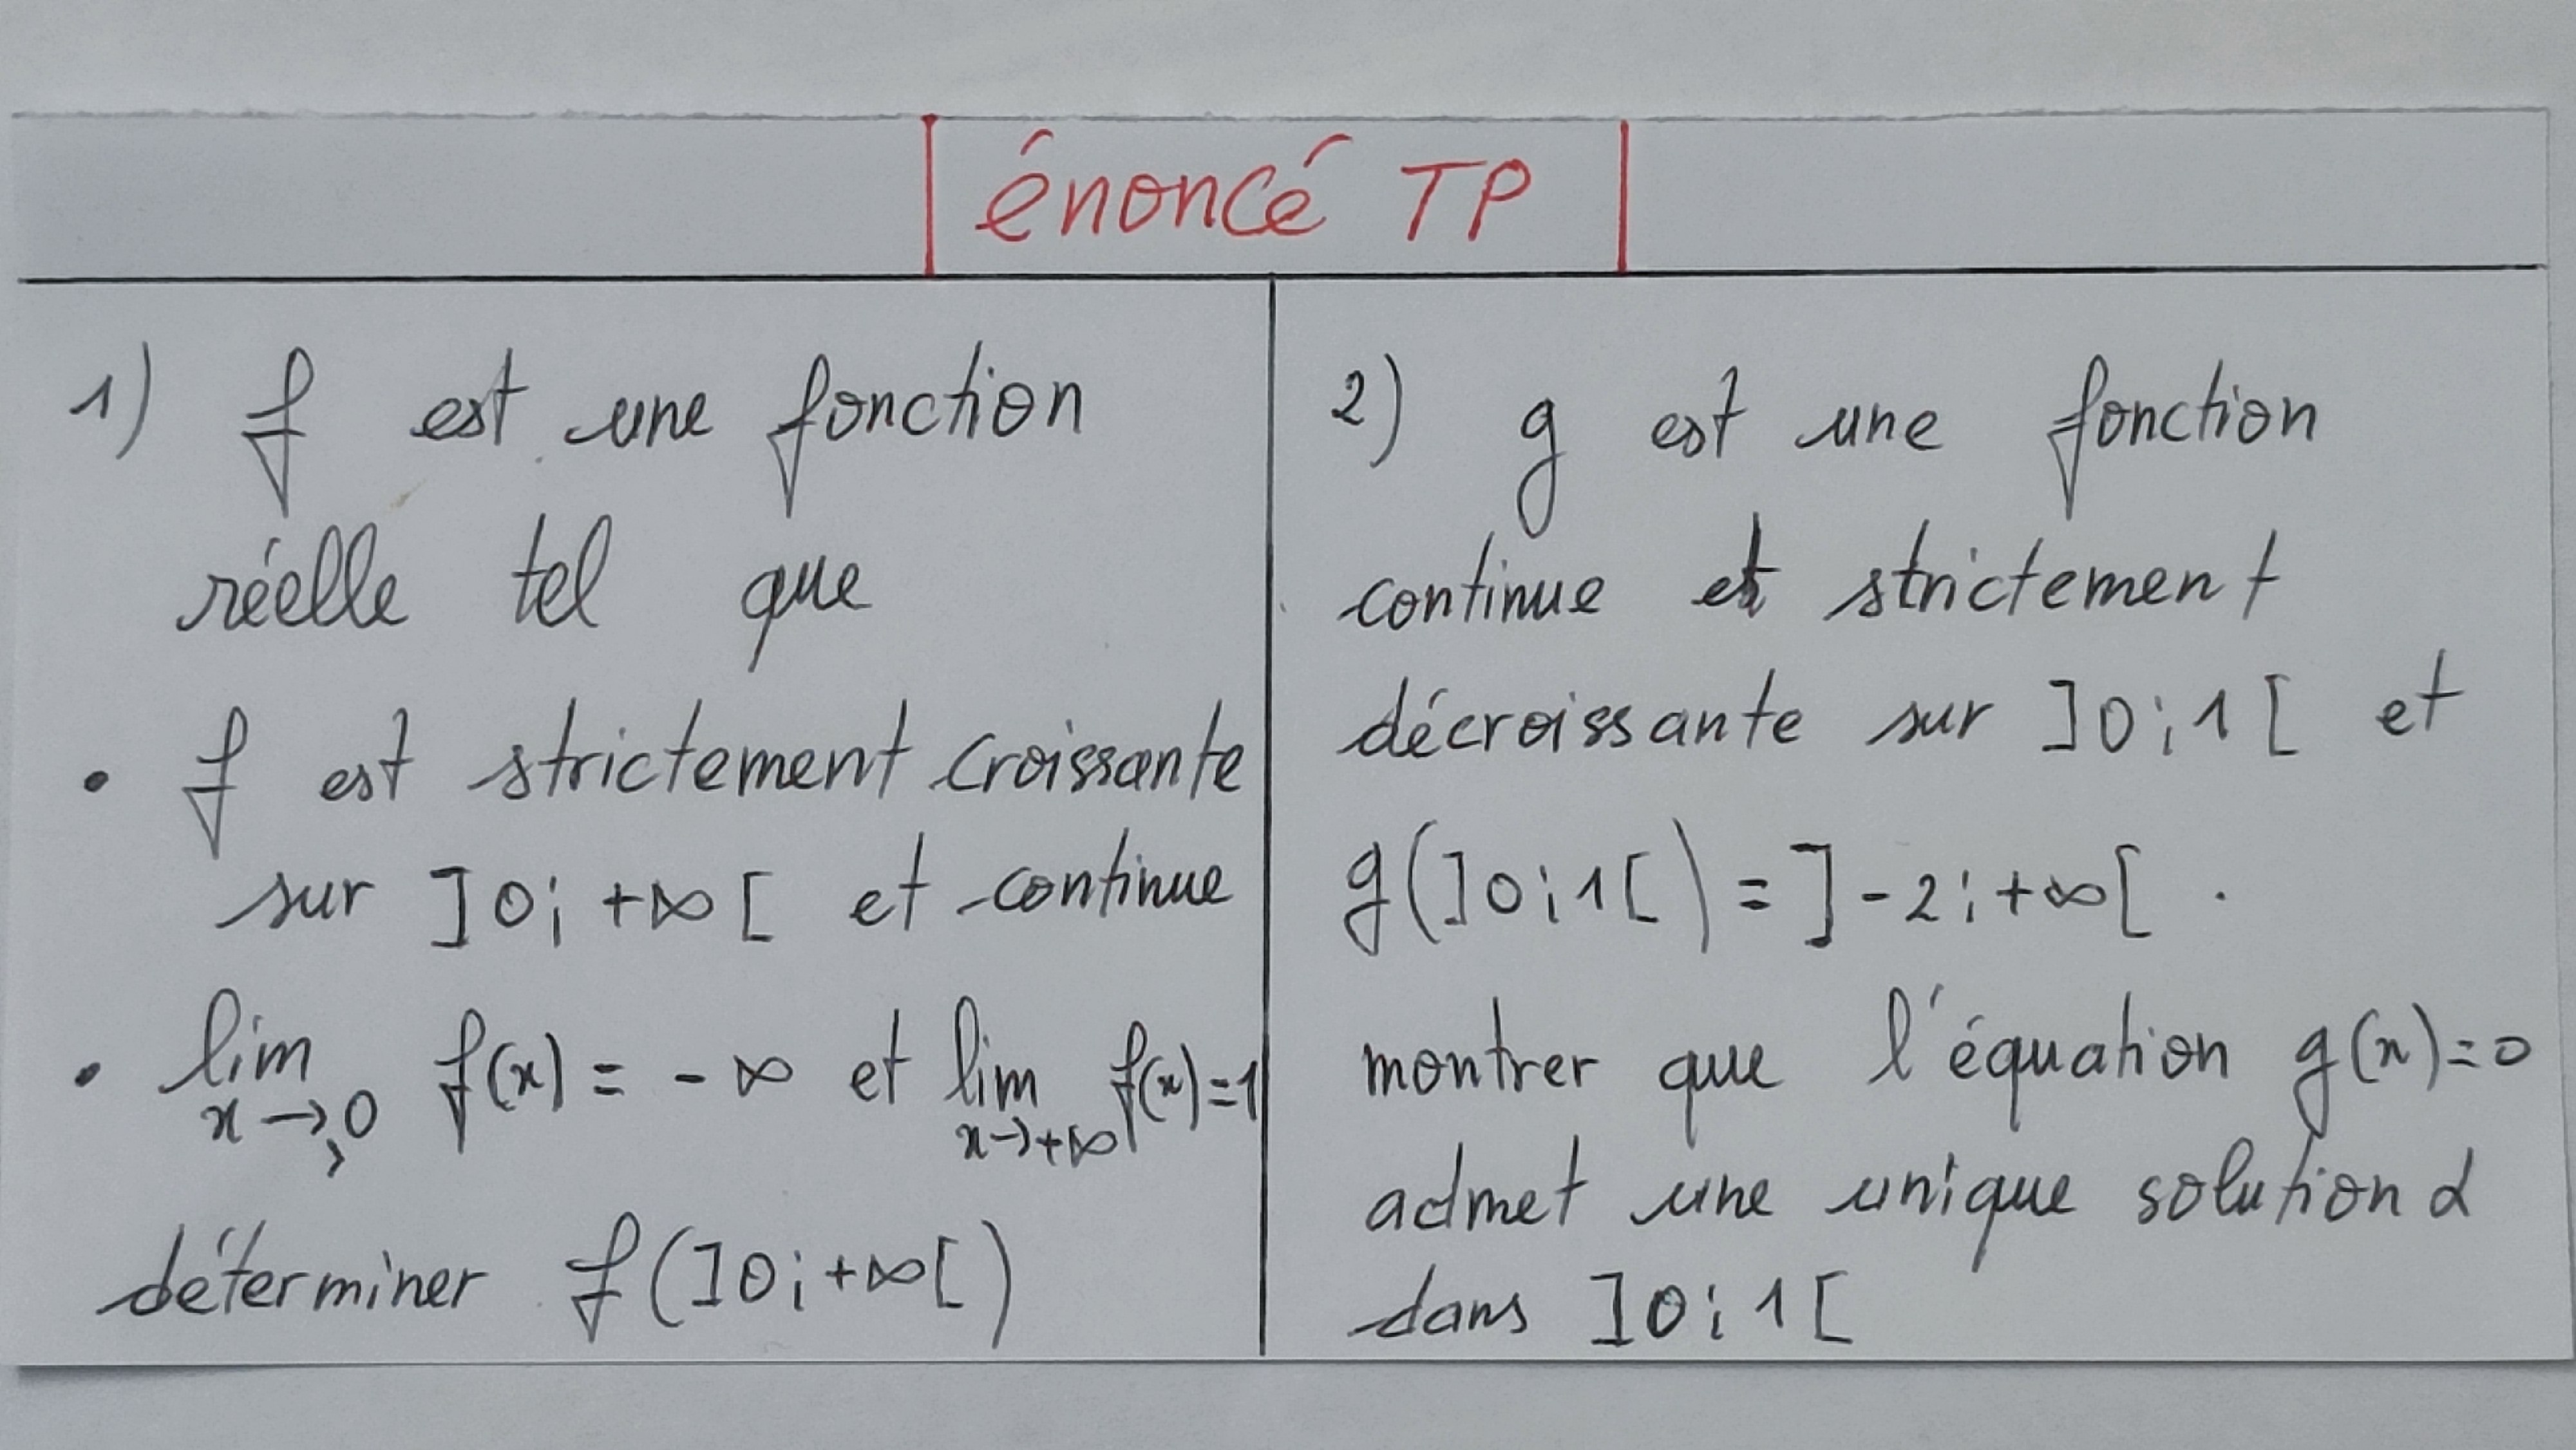 énoncé TP
1) f est une fonction
réelle tel que
• f est strictement croissante
sur ]0; +∞[ et continue
• lim f(x) = -∞ et lim f(x)=1
x→0 x→+∞
>
déterminer f(]0;+∞[)
2) g est une fonction
continue et strictement
décroissante sur ]0;1[ et
g(]0;1[) = ]-2;+∞[ .
montrer que l'équation g(x)=0
admet une unique solution α
dans ]0;1[